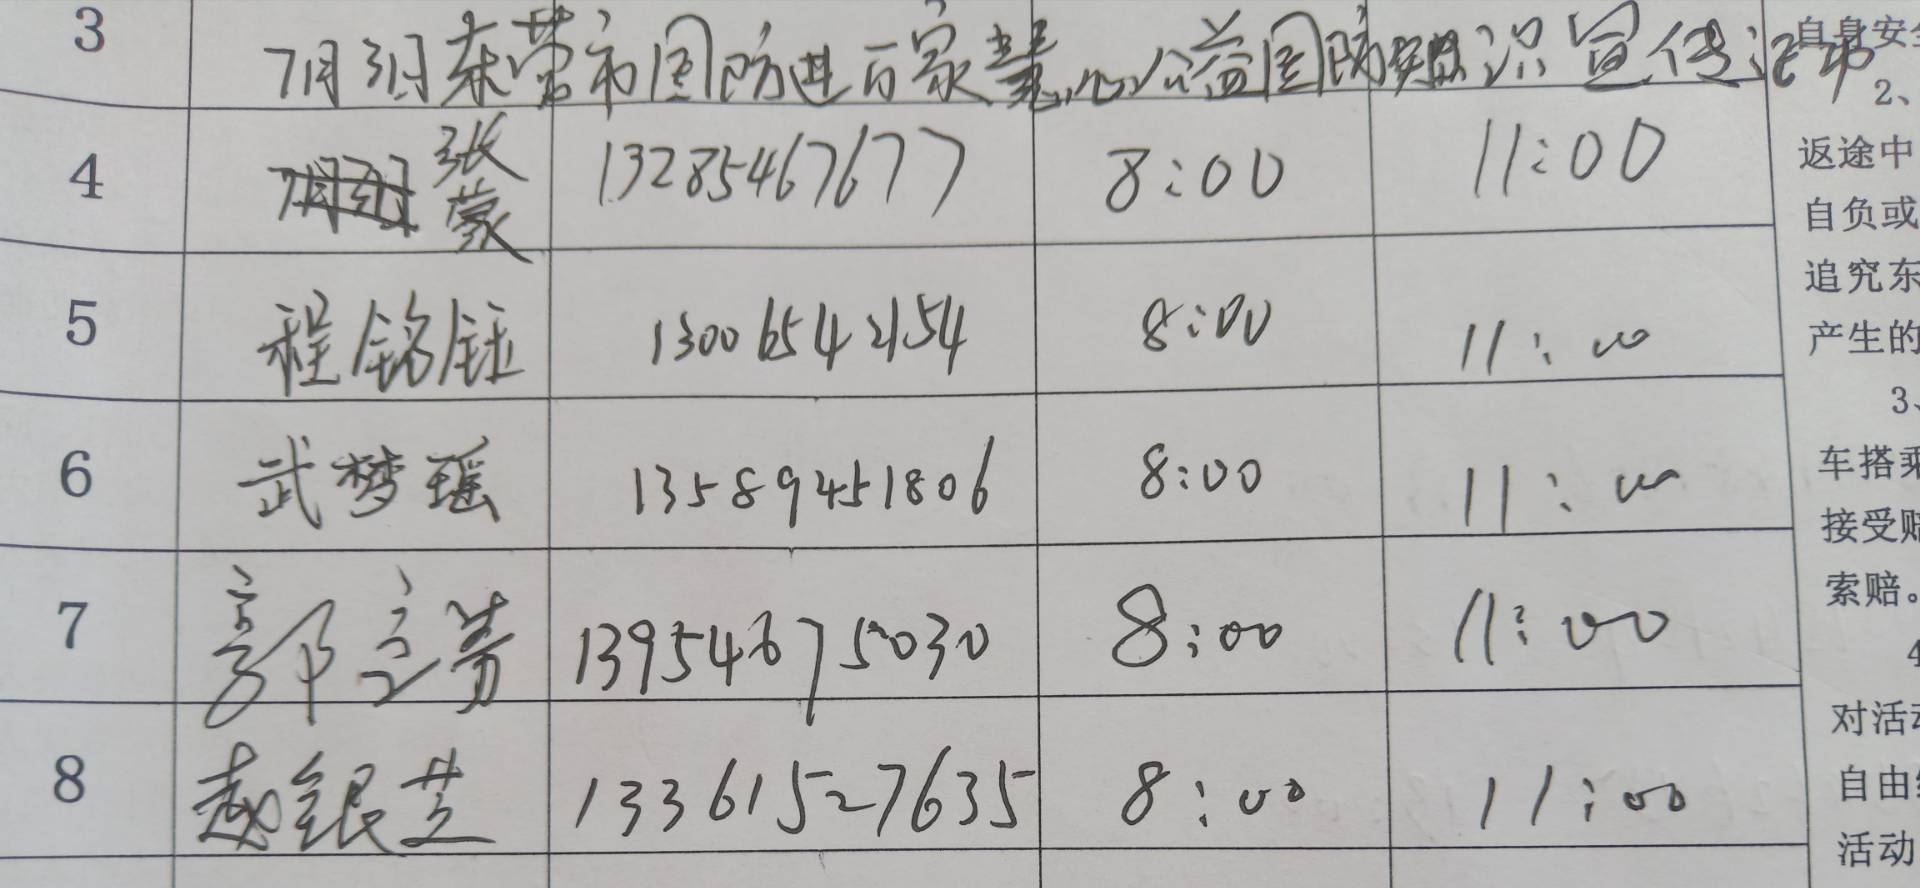 3 7月3日东营市国防进百家慧心公益国防知识宣传活动
自身安全
2、
4 张蒙 13285467677 8:00 11:00
返途中
自负或
追究东
5 程铭钰 13006542154 8:00 11:00
产生的
3、
6 武梦瑶 13589451806 8:00 11:00
车搭乘
接受赔
索赔。
7 郭立芳 13954675030 8:00 11:00
4
对活动
8 赵银芝 13361527635 8:00 11:00
自由组
活动